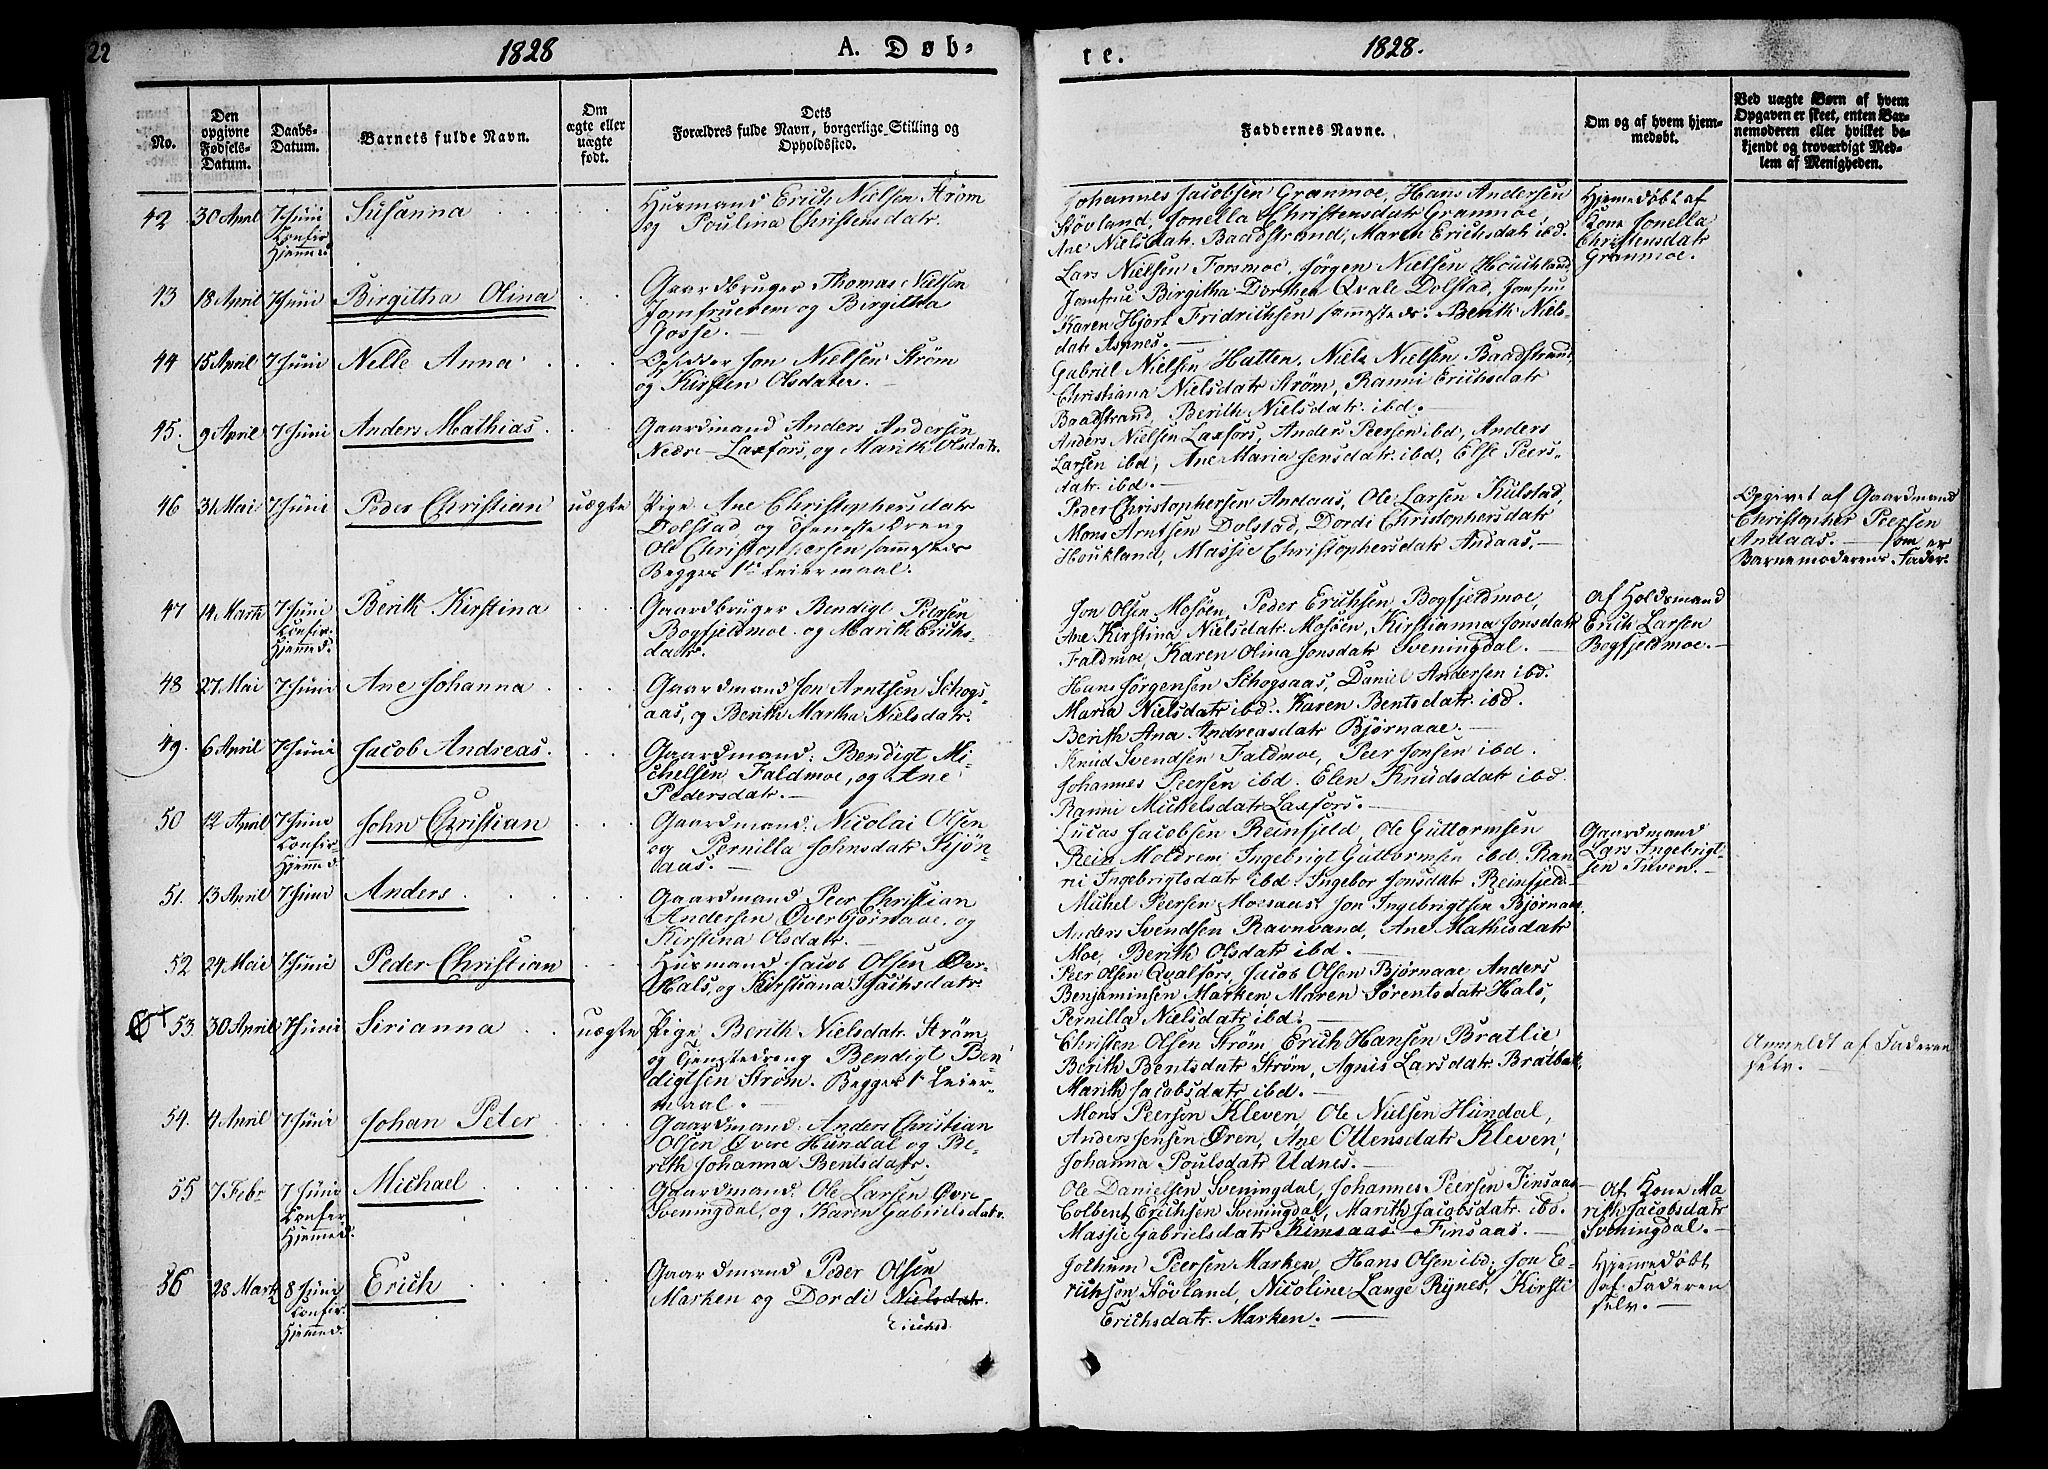 22
1828
A. Døb-
te.
1828.
No.
Den opgivne Fødsels-Datum.
Daabs-Datum.
Barnets fulde Navn.
Om ægte eller uægte født.
Dets Forældres fulde Navn, borgerlige Stilling og Opholdssted.
Faddernes Navne.
Om og af hvem hjemmedøbt.
Ved uægte Børn af hvem Opgaven er skeet, enten Barnemoderen eller hvilket bekjendt og troværdigt Medlem af Menigheden.
42 30 April 7 Juni Confir. Hjemmed. Susanna
Huusmand Erich Nielsen Strøm
og Poulina Christensdatr.
Johannes Jacobsen Granmoe, Hans Andersen
Støvland, Jonella Christensdatr Granmoe,
Ane Nielsdatr. Baadstrand, Maren Erichsdatr ibd.
Hjemedøbt af
Kone Jonella
Christensdatr
Granmoe.
43 18 April 7 Juni Birgitha Olina
Gaardbruger Thomas Nielsen
Jomfruerem og Birgitha
Gosse.
Lars Nielsen Forsmoe, Jørgen Nielsen Houkland,
Jomfrue Birgitha Dorthea Qvale Dolstad, Jomfrue
Karen Hjort Fridrichsen sammesteds. Berith Niels-
datr Aspnes.
44 15 April 7 Juni Nelle Anna
Opsidder Jon Nielsen Strøm
og Kirsten Olsdater.
Gabriel Nielsen Hatten, Niels Nielsen Baadstrand,
Christiana Nielsdatr Strøm, Ranni Erichsdatr
Baadstrand, Berith Nielsdatr. ibd.
45. 9 April 7 Juni Anders Mathias.
Gaardmand Anders Andersen
Nedre-Laxfors, og Marith Olsdatr.
Anders Nielsen Laxfors, Anders Peersen ibd, Anders
Larsen ibd, Ane Maria Jensdatr. ibd, Else Peers-
datr. ibd.
46 31 Mai 7 Juni Peder Christian uægte
Pige Ane Christophersdatr
Dolstad og Tjeneste Dreng
Ole Christophersen sammesteds
Begges 1te Leiermaal.
Peder Christophersen Andaas, Ole Larsen Kulstad,
Mons Arntsen Dolstad, Dordi Christophersdatr
Houkland, Massie Christophersdatr Andaas.
Opgivet af Gaardmand
Christopher Peersen
Andaas. som er
Barnemoderens Fader.
47 14 Marth 7 Juni Confir. Hjemmed. Berith Kirstina
Gaardbruger Bendigt Peersen
Bogfjeldmoe. og Marith Erichs-
datr.
Jon Olsen Mosøen, Peder Erichsen Bogfjeldmoe,
Ane Kirstina Nielsdatr. Mosøen, Kirstianna Jonsdatr
Faldmoe, Karen Olina Jonsdatr Sveningdal.
Af Holdsmand
Erich Larsen
Bogfjeldmoe.
48 27 Mai 7 Juni Ane Johanna
Gaardmand Jon Arntsen Schogs-
aas, og Berith Martha Nielsdatr.
Hans Jørgensen Schogsaas, Daniel Andersen ibd.
Maria Nielsdatr ibd. Karen Bentsdatr. ibd.
Berith Ana Andreasdatr Bjørnaae.
49. 6 April 7 Juni Jacob Andreas.
Gaardmand: Bendigt Mi-
chelsen Faldmoe, og Ane
Pedersdatr.
Knud Svendsen Faldmoe, Peer Jonsen ibd.
Johannes Peersen ibd. Elen Knudsdatr ibd.
Ranni Mickelsdatr Laxfors.
50 12 April 7 Juni Confir. Hjemmed. John Christian
Gaardmand: Nicolai Olsen
og Pernilla Johnsdatr Kjøn-
aas.
Lucas Jacobsen Reinfjeld, Ole Guttormsen
Rein Moldrem, Ingebrigt Guttormsen ibd. Ran-
ni Ingebrigtsdatr ibd. Ingebor Jonsdatr Reinfjeld.
Gaardmand
Lars Ingebrigt-
sen Tuven.
51. 13 April 7 Juni Anders.
Gaardmand Peer Christian
Andersen Øver Bjørnaae, og
Kirstina Olsdatr.
Michel Peersen Moesaas, Jon Ingebrigtsen Bjørnaae,
Anders Svendsen Ravnvand, Ane Mathisdatr
Moe, Berith Olsdatr ibd.
52 24 Mai 7 Juni Peder Christian
Huusmand Jacob Olsen Øvr
Hals, og Kirstiana Isachsdatr
Peer Olsen Qvalfors, Jacob Olsen Bjørnaae Anders
Benjaminsen Marken, Maren Sørentsdatr Hals,
Pernilla Nielsdatr ibd.
53 30 April 7 Juni Sirianna uægte
Pige Berith Nielsdatr. Strøm
og Tjenestedreng Bendigt Ben-
digtsen Strøm. Begges 1te Leier-
maal.
Christen Olsen Strøm, Erich Hansen Bratlie,
Berith Bentsdatr Strøm, Agnis Larsdatr. Bratbak,
Marith Jacobsdatr ibd.
Anmeldt af Faderen
selv.
54. 4 April 7 Juni Johan Peter
Gaardmand: Anders Christian
Olsen Øvere Hundal og Be-
rith Johanna Bentsdatr.
Mons Peersen Kleven, Ole Nielsen Hundal,
Anders Jensen Øren, Ane Ottensdatr Kleven,
Johanna Poulsdatr Udnes.
55 7 Febr 7 Juni Confer Hjemmed. Michael
Gaardmand. Ole Larsen Øvre
Sveningdal, og Karen Gabrielsdatr.
Ole Danielsen Sveningdal, Johannes Peersen Finsaas
Colbent Erichsen Sveningdal, Marith Jacobsdatr. ibd.
Massie Gabrielsdatr Kimsaas Finsaas.
Af Kone Ma-
rith Jacobsdatr
Sveningdal.
56 28 Marts 8 Juni Confir. Hjemmed. Erich
Gaardmand Peder Olsen
Marken og Dordi Nielsdatr.
Erichsd
Jochum Peersen Marken, Hans Olsen ibd. Jon E-
richsen Støvland, Nicoline Lange Rynes, Kirsti
Erichsdatr. Marken.
Hjemmedøbt
af Faderen
selv.